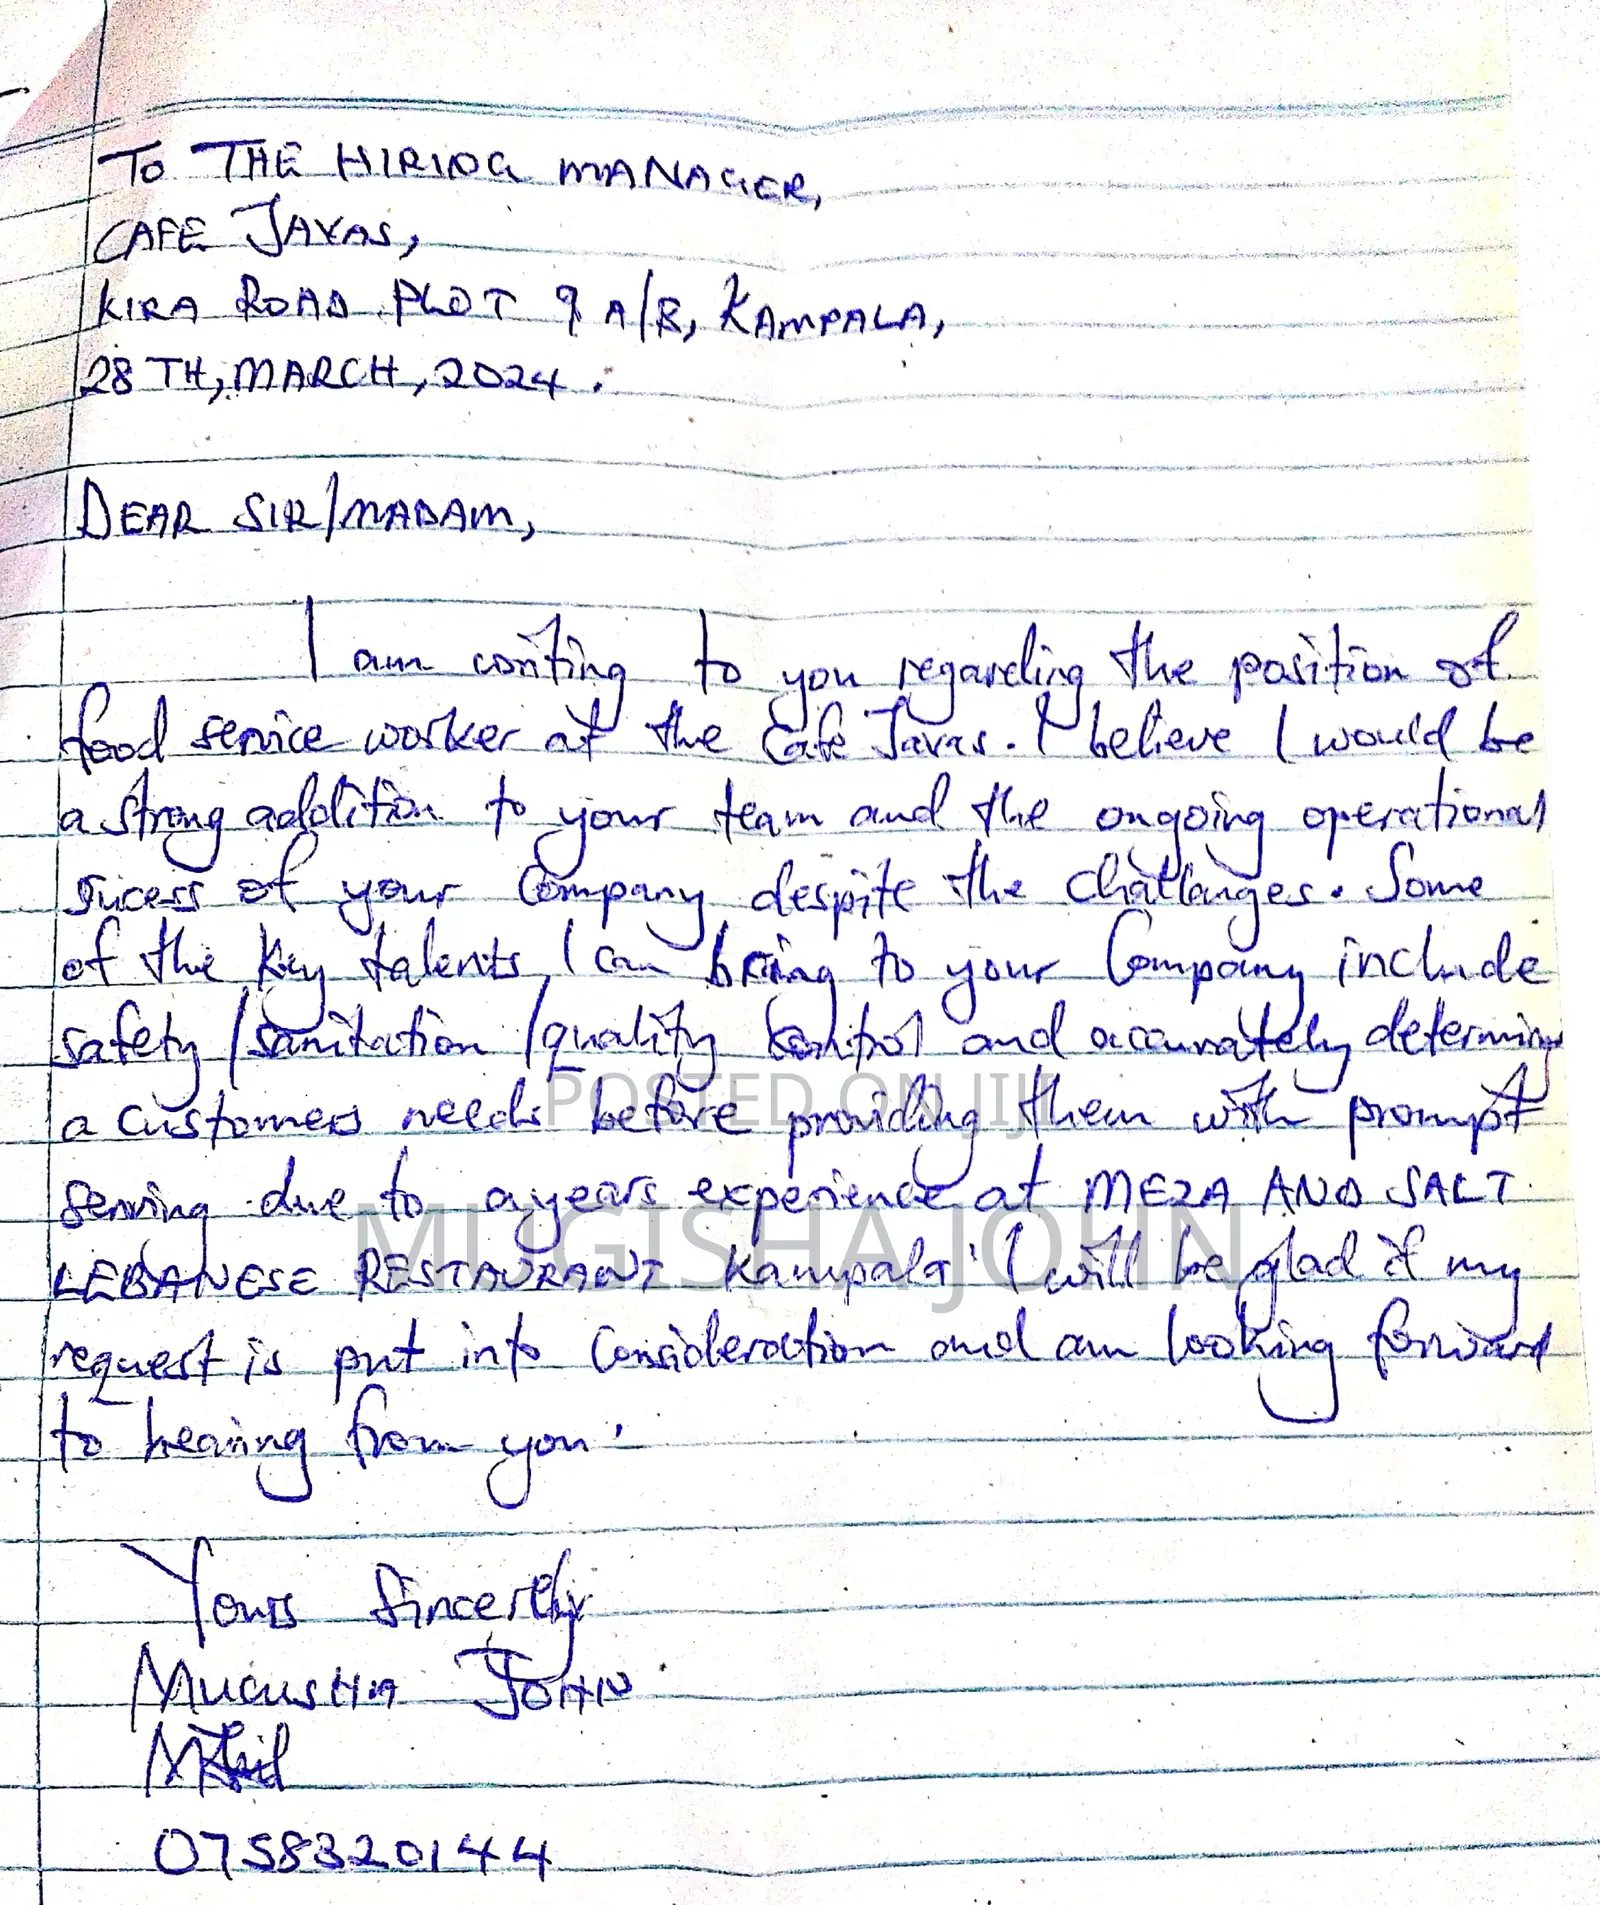 To THE HIRING MANAGER,
CAFE JAVAS,
KIRA ROAD PLOT 9 A/B, KAMPALA,
28TH, MARCH, 2024.
DEAR SIR/MADAM,
I am writing to you regarding the position of
food service worker at the Cafe Javas. I believe I would be
a strong addition to your team and the ongoing operational
sucess of your Company despite the challanges. Some
of the key talents I can bring to your Company include
safety /sanitation /quality control and accurately determining
a customers needs before providing them with prompt
serving due to a years experience at MEZA AND SALT
LEBANESE RESTAURANT Kampala. I will be glad if my
request is put into Consideration and am looking forward
to hearing from you.
POSTED ON JIJI
MUGISHA JOHN
Yours Sincerely
MUGISHA JOHN
0758320144